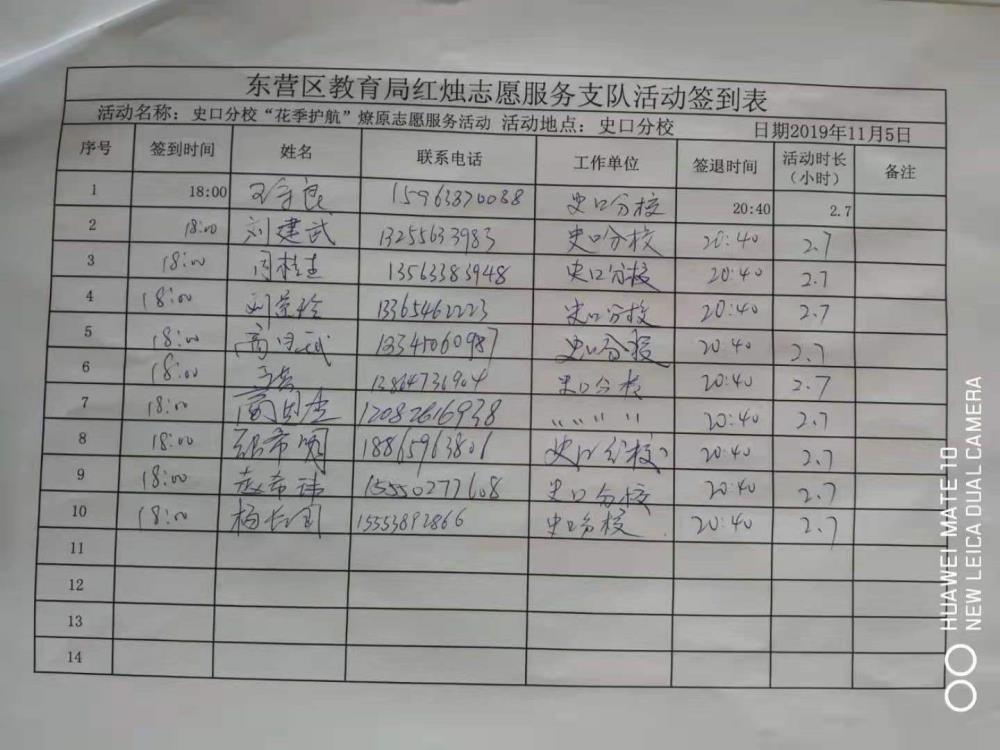 东营区教育局红烛志愿服务支队活动签到表
活动名称：史口分校“花季护航”燎原志愿服务活动 活动地点：史口分校 日期2019年11月5日
序号 签到时间 姓名 联系电话 工作单位 签退时间 活动时长（小时） 备注
1 18:00 王守良 15963870088 史口分校 20:40 2.7
2 18:00 刘建武 13255633983 史口分校 20:40 2.7
3 18:00 周桂圭 13563383948 史口分校 20:40 2.7
4 18:00 刘荣珍 13365462223 史口分校 20:40 2.7
5 18:00 史口分校 20:40 2.7
6 18:00 13864736904 史口分校 20:40 2.7
7 18:00 〃〃〃〃 20:40 2.7
8 18:00 张希颂 18865963806 史口分校 20:40 2.7
9 18:00 赵希玮 15550277608 史口分校 20:40 2.7
10 18:00 杨长国 15553892866 史口分校 20:40 2.7
11
12
13
14
HUAWEI MATE 10
NEW LEICA DUAL CAMERA